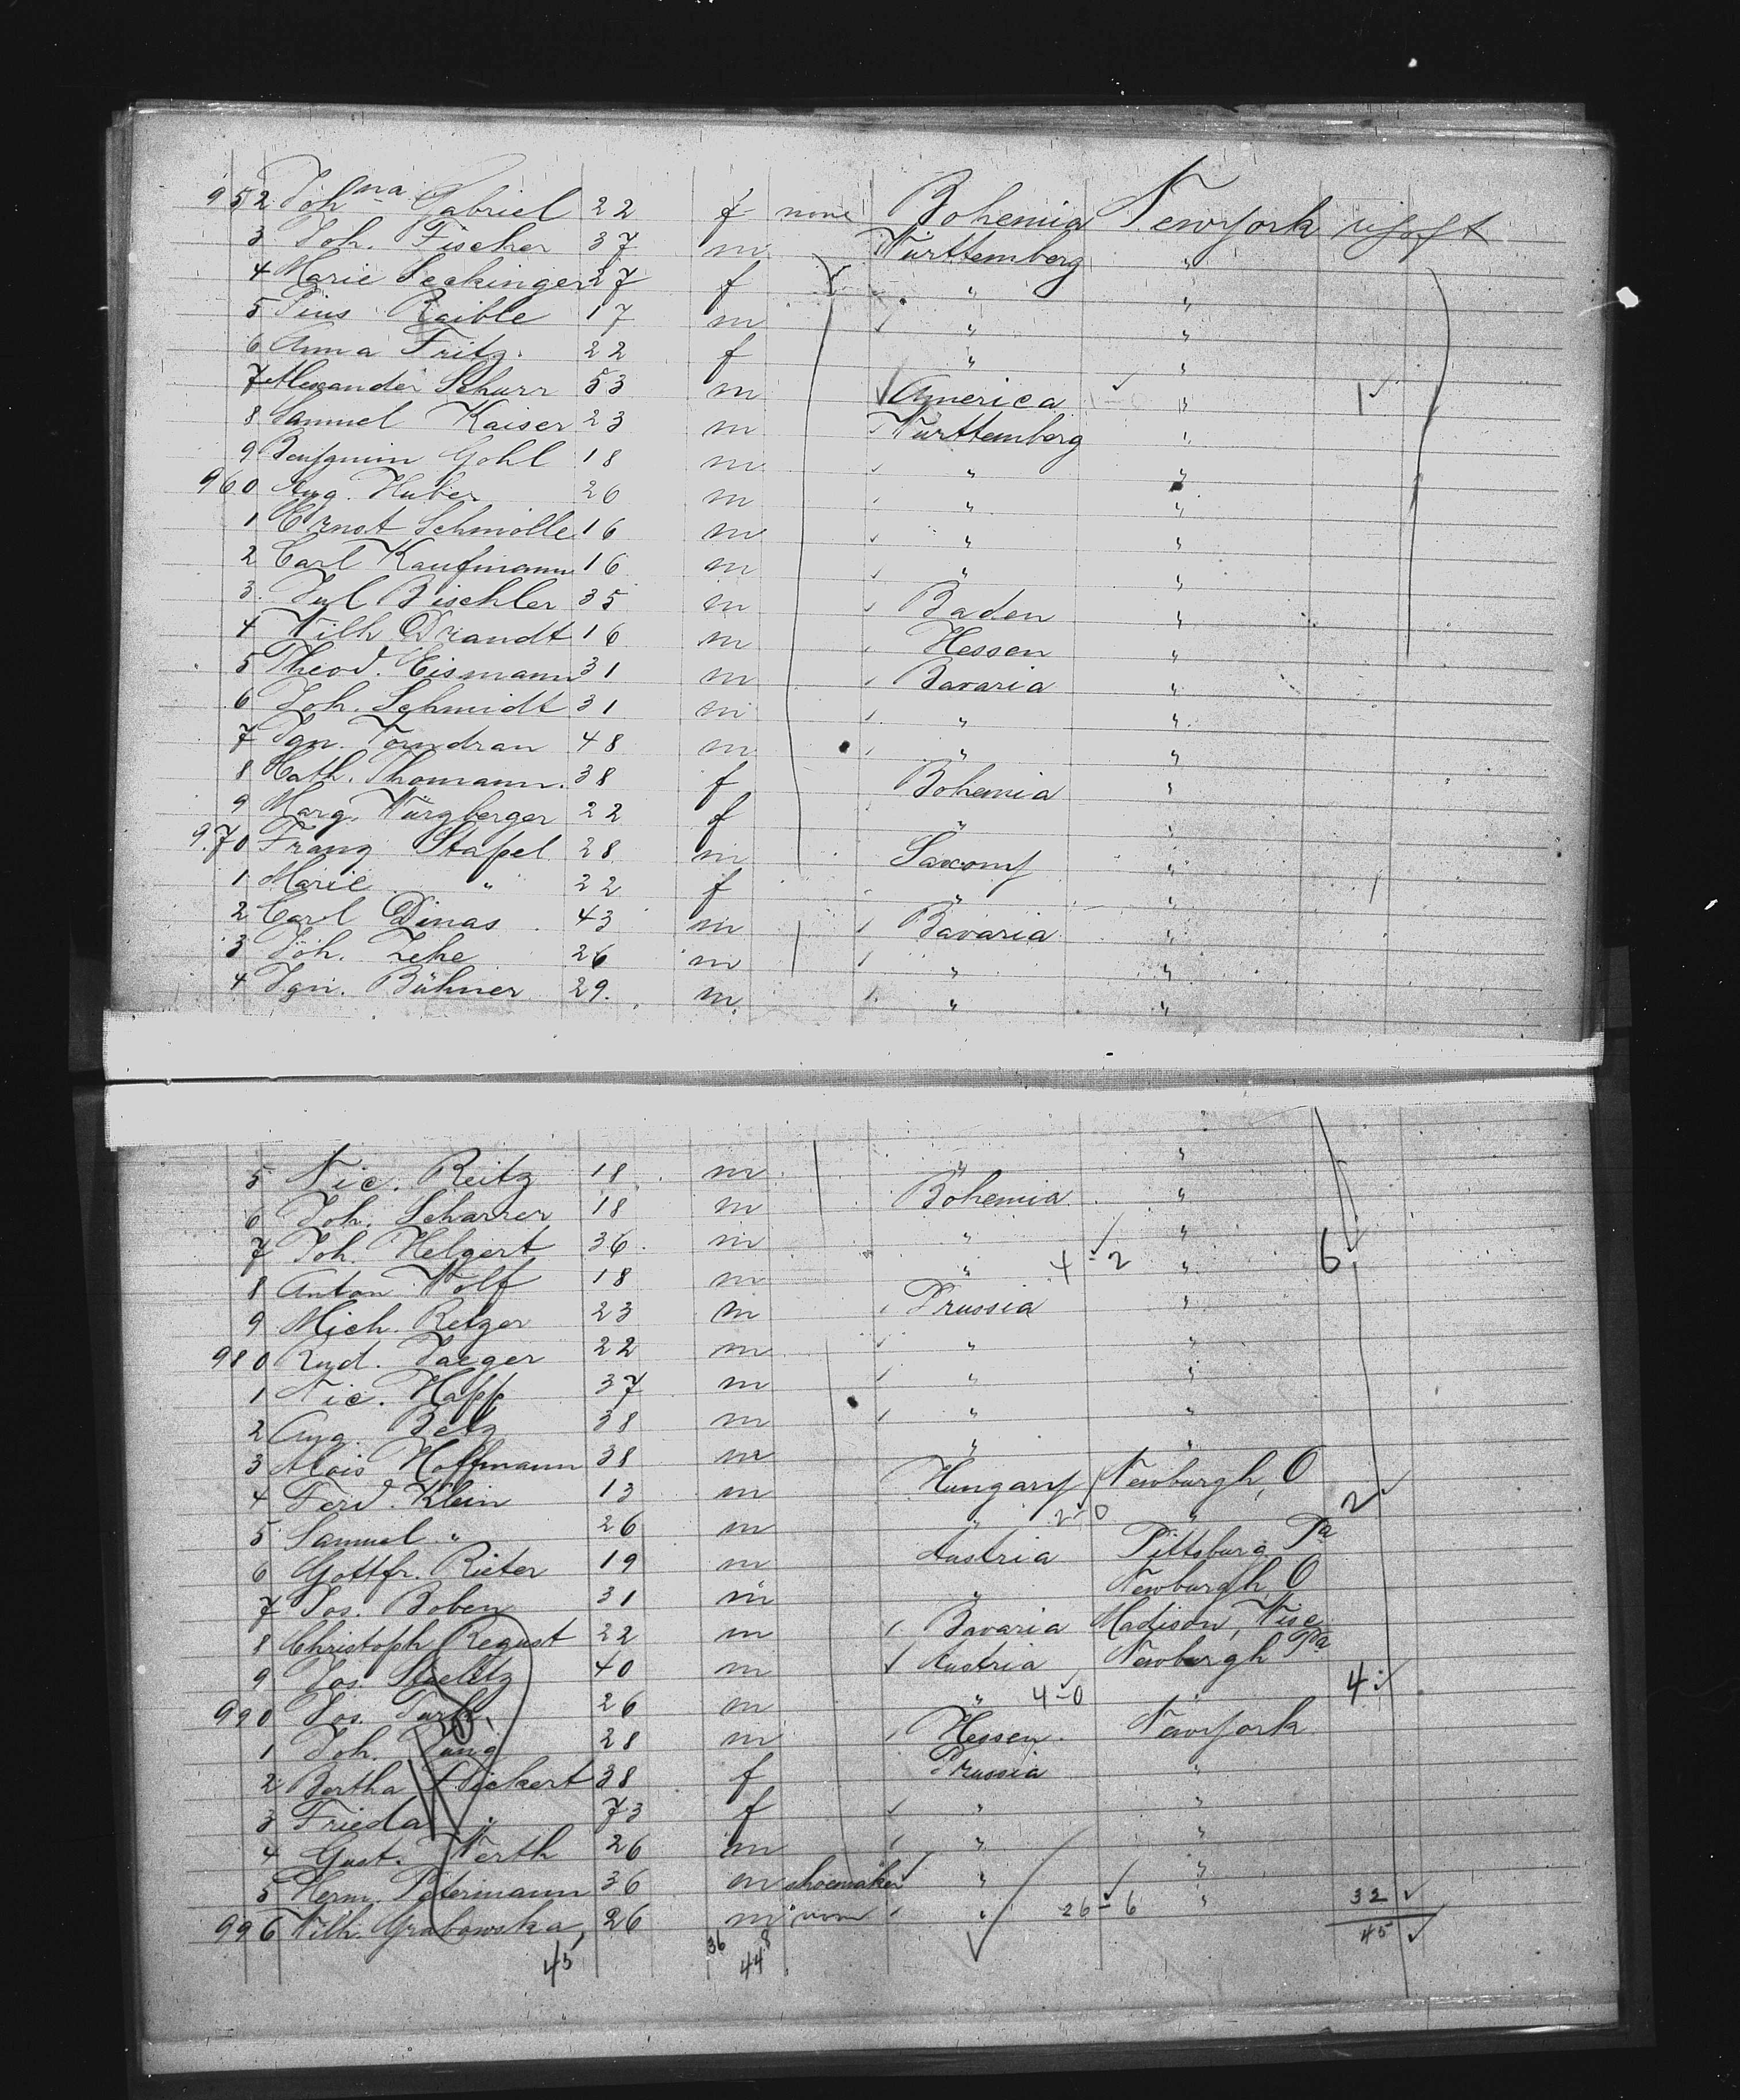 952 Joh^na Gabriel 22 f none Bohemia Newyork
3 Joh. Fischer 37 m Württemberg "
4 Marie Seckinger 27 f " "
5 Pius Raible 17 m " "
6 Anna Fritz 22 f " "
7 Alexander Schurr 53 m America " 1
8 Samuel Kaiser 23 m Württemberg "
9 Benjamin Gohl 18 m " "
960 Aug. Huber 26 m " "
1 Ernst Schmolle 16 m " "
2 Carl Kaufmann 16 m " "
3 Jul Bischler 35 m Baden "
4 Wilh Brandt 16 m Hessen "
5 Theod. Eismann 31 m Bavaria "
6 Joh. Schmidt 31 m " "
7 Ign. Torndran 48 m " "
8 Kath. Thomann. 38 f Bohemia "
9 Marg. Würzberger 22 f " "
970 Franz Stapel 28 m Saxony "
1 Marie " 22 f " "
2 Carl Dinas 43 m Bavaria "
3 Joh. Zehe 26 m " "
4 Ign. Bühner 29. m " "
5 Nic. Reitz 18 m " "
6 Joh. Scharrer 18 m Bohemia "
7 Joh. Helgert 36 m " "
8 Anton Wolf 18 m " 4-2 " 6
9 Mich. Retzer 23 m Prussia "
980 Rud. Jaeger 22 m " "
1 Nic. Happ 37 m " "
2 Aug. Betz 38 m " "
3 Alois Hoffmann 38 m " "
4 Ferd. Klein 13 m Hungary Newburgh, O
5 Samuel " 26 m " 2-0 " 2
6 Gottfr. Rieter 19 m Austria Pittsburg Pa
7 Jos. Boben 31 m " Newburgh, O
8 Christoph Regust 22 m Bavaria Madison, Wisc
9 Jos. 40 m Austria Newburgh Pa
990 Jos. Turk 26 m " 4-0 " 4
1 Joh. Jung 28 m Hessen Newyork
2 Bertha Fickert 38 f Prussia "
3 Frieda " 73 f " "
4 Gust. Werth 26 m " "
5 Herm. Petermann 36 m shoemaker " "
996 Wilh. Grabowska, 26 m none " 26-6 " 32
45 36 8 45
44